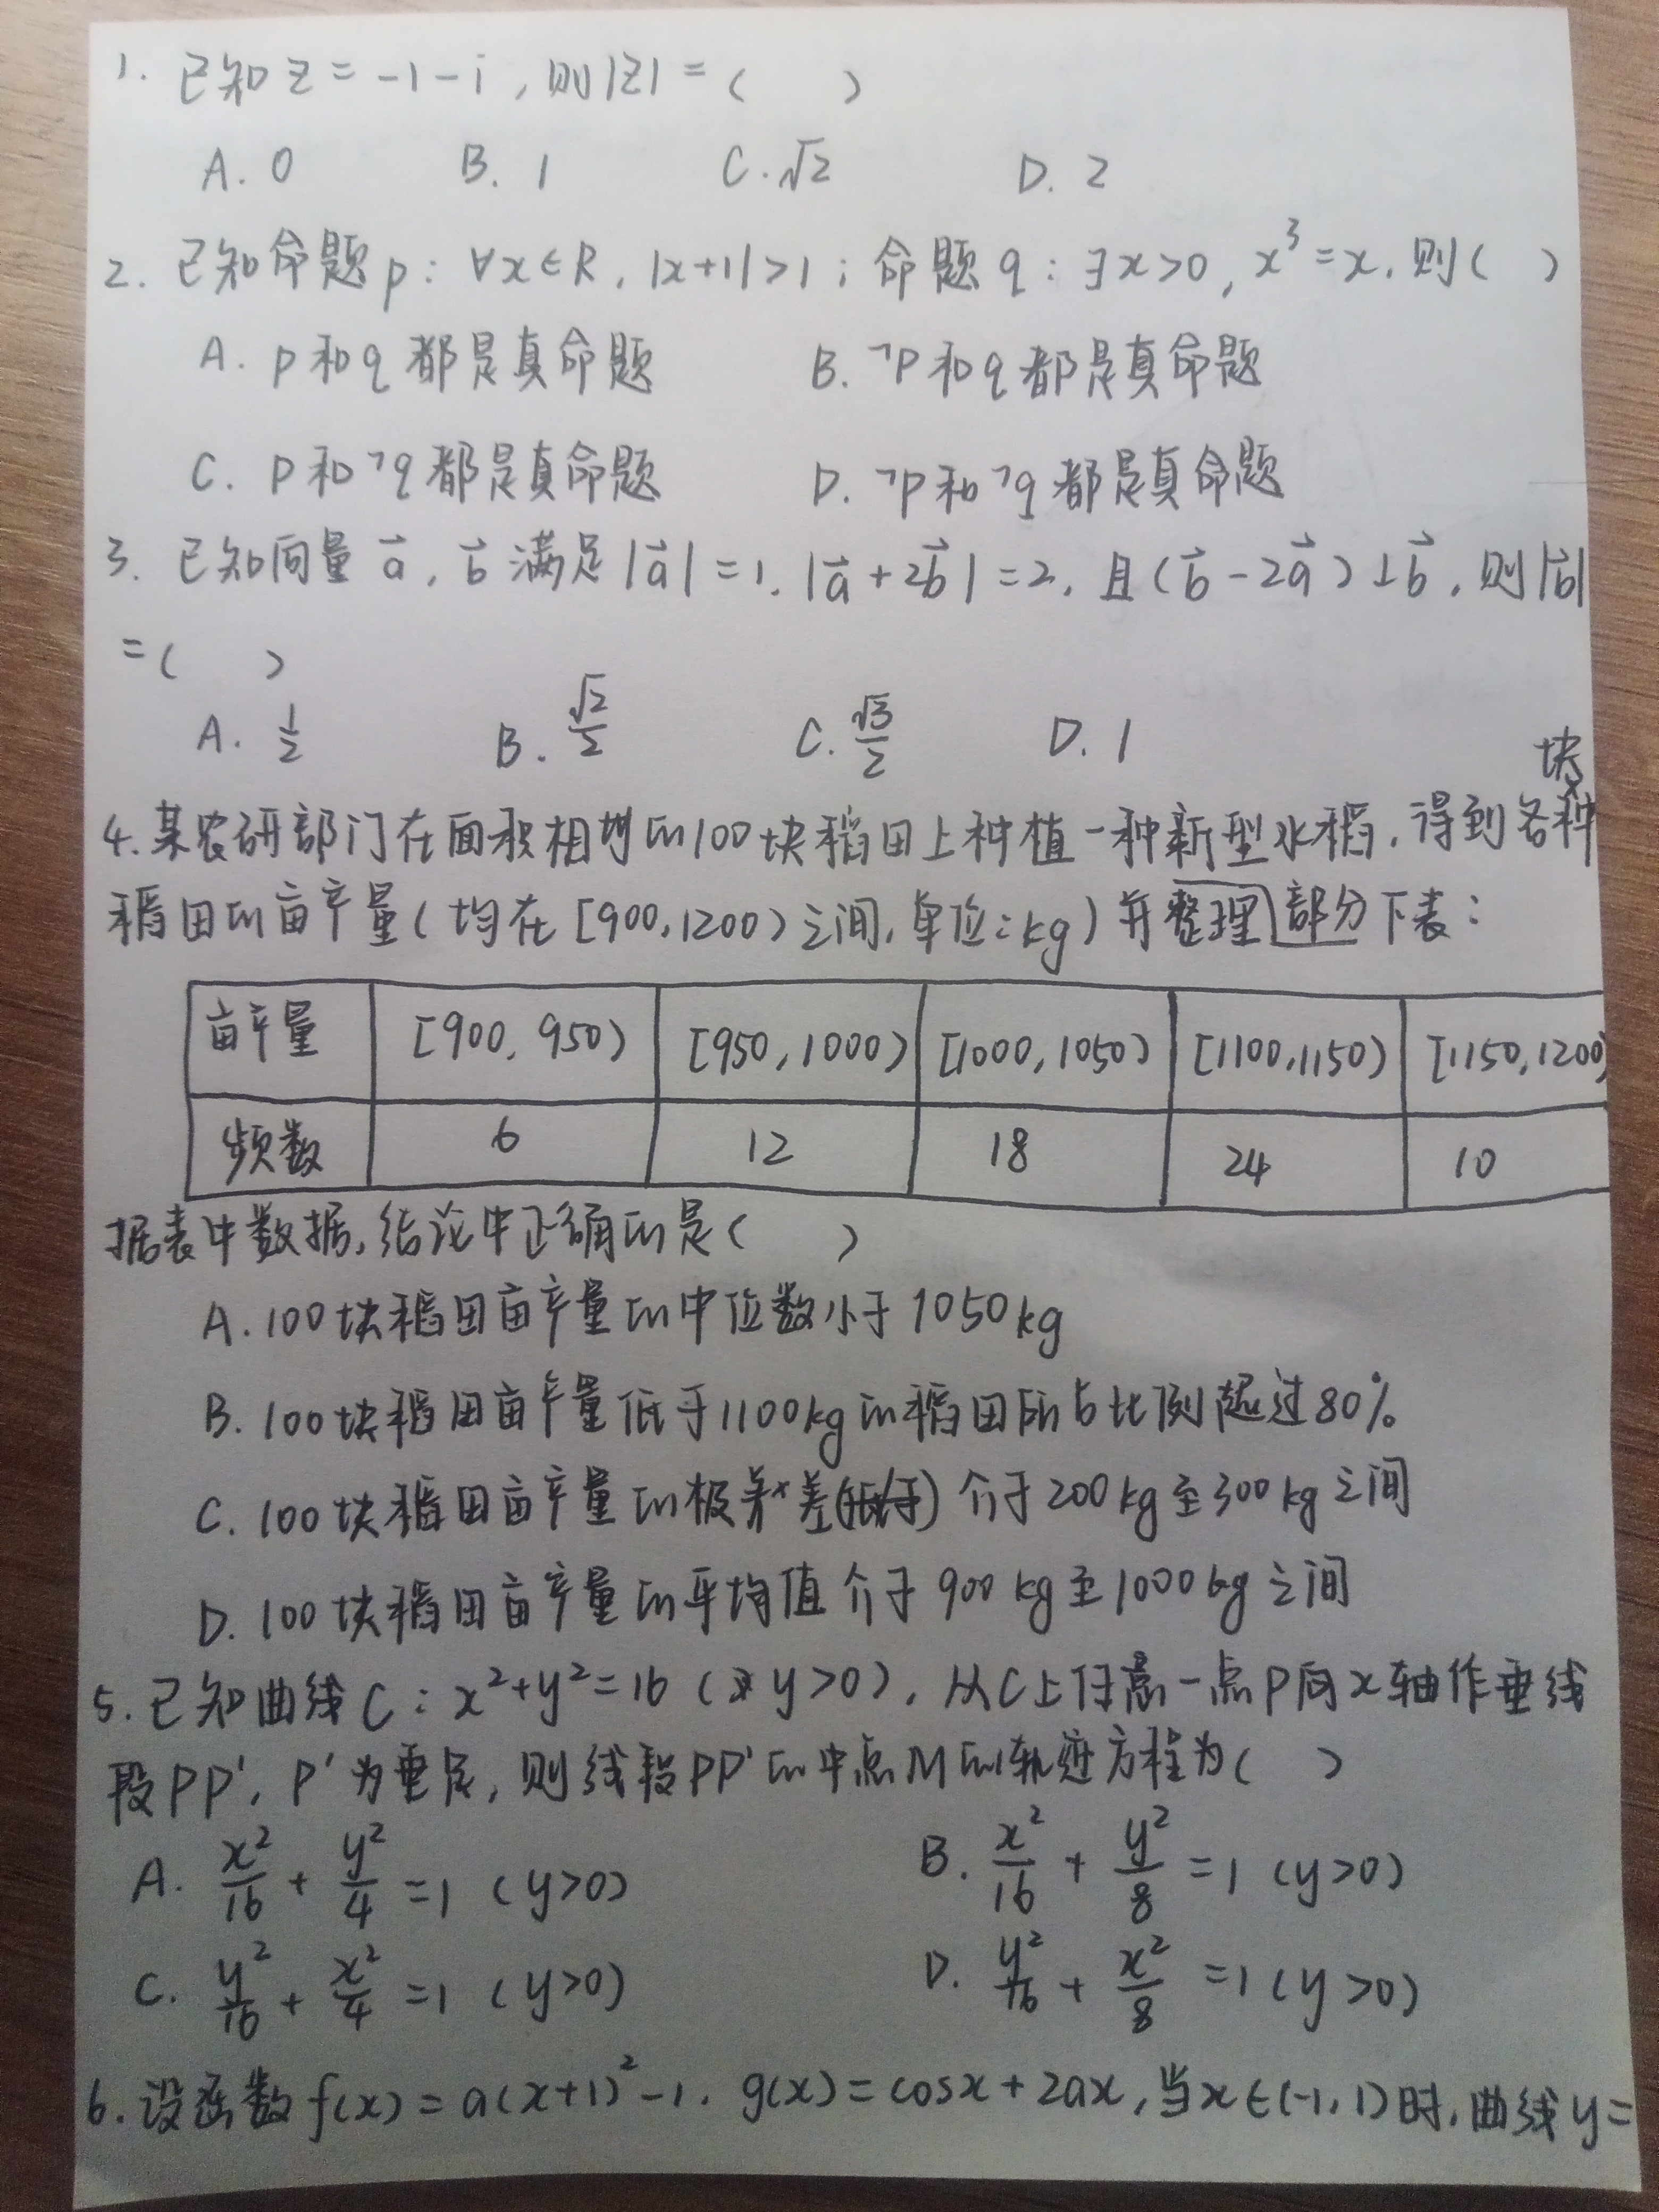 1. 已知z=-1-i,则|z|=( )
A. 0 B. 1 C. √2 D. 2
2. 已知命题p: ∀x∈R, |x+1|>1; 命题q: ∃x>0, x³=x, 则( )
A. p和q都是真命题 B. ¬p和q都是真命题
C. p和¬q都是真命题 D. ¬p和¬q都是真命题
3. 已知向量a⃗, b⃗满足|a⃗|=1, |a⃗+2b⃗|=2, 且(b⃗-2a⃗)⊥b⃗, 则|b⃗|
=( )
A. 1/2 B. √2/2 C. √3/2 D. 1
块
4. 某农研部门在面积相等的100块稻田上种植一种新型水稻, 得到各种
稻田的亩产量(均在[900,1200)之间, 单位:kg)并整理部分下表:
亩产量 [900, 950) [950, 1000) [1000, 1050) [1100, 1150) [1150, 1200)
频数 6 12 18 24 10
据表中数据, 结论中正确的是( )
A. 100块稻田亩产量的中位数小于1050kg
B. 100块稻田亩产量低于1100kg的稻田所占比例超过80%
C. 100块稻田亩产量的极差介于200kg至300kg之间
D. 100块稻田亩产量的平均值介于900kg至1000kg之间
5. 已知曲线C: x²+y²=16 (y>0), 从C上任意一点P向x轴作垂线
段PP', P'为垂足, 则线段PP'的中点M的轨迹方程为( )
A. x²/16 + y²/4 =1 (y>0) B. x²/16 + y²/8 =1 (y>0)
C. y²/16 + x²/4 =1 (y>0) D. y²/16 + x²/8 =1 (y>0)
6. 设函数f(x)=a(x+1)²-1, g(x)=cosx+2ax, 当x∈(-1,1)时, 曲线y=